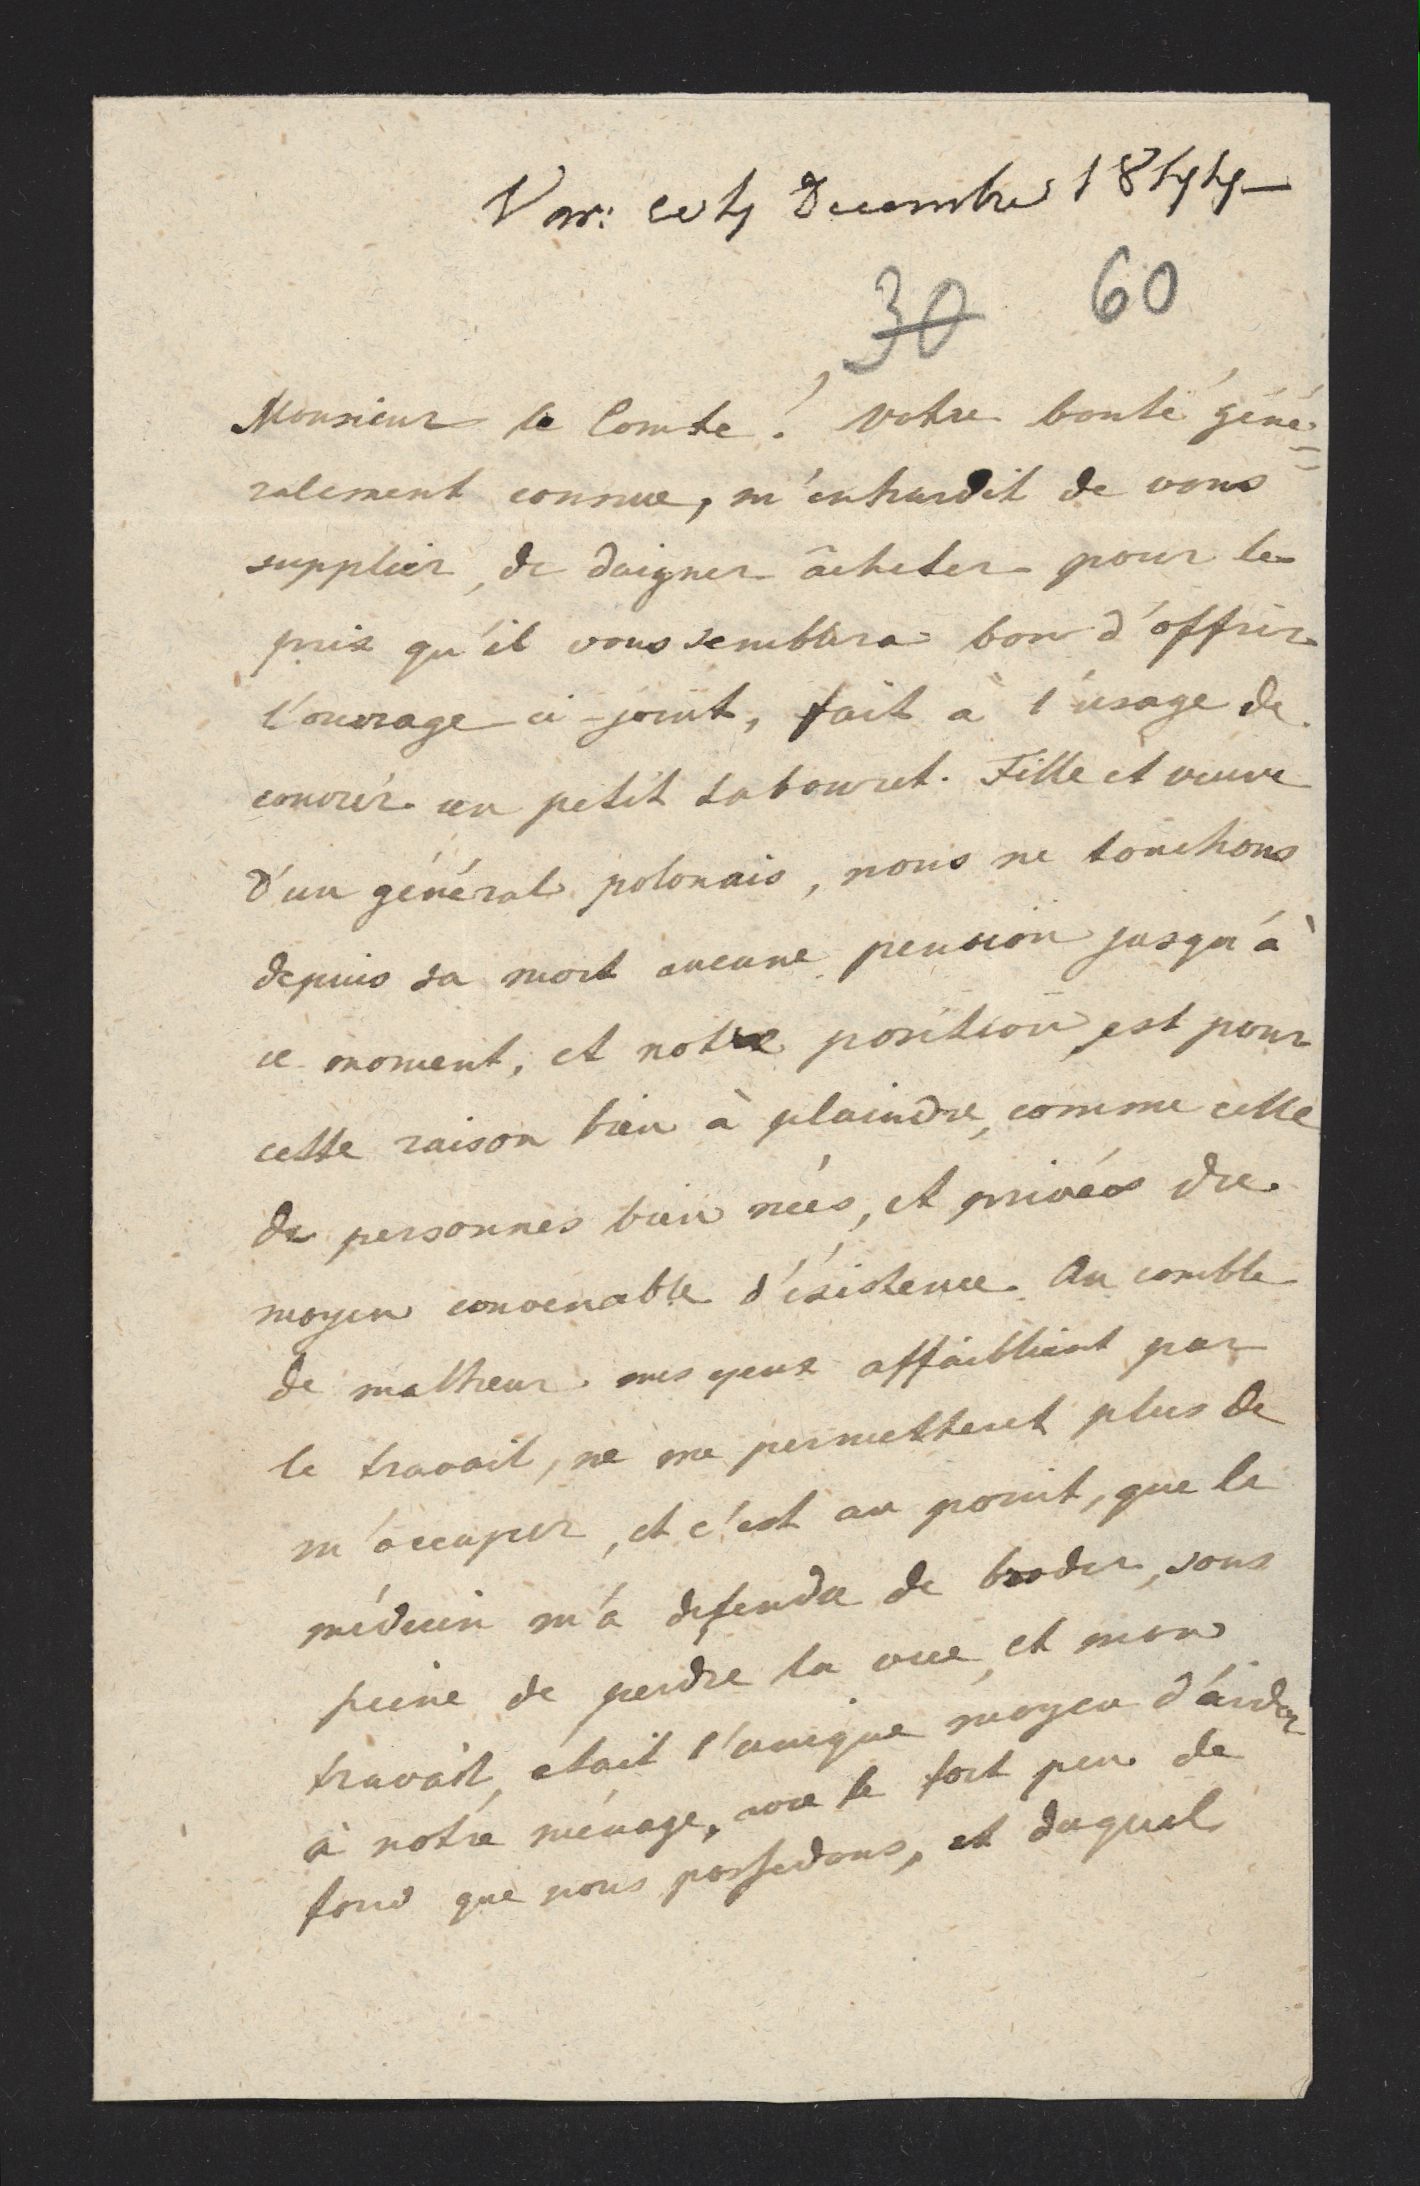 Var: ce 4 Decembre 1844
30 60
Monsieur le Comte! Votre bonté géné=
ralement connue, m'enhardit de vous
supplier, de daigner âcheter pour le
prix qu'il vous semblera bon d'offrir
l'ouvrage ci-joint, fait à l'usage de
couvrir un petit tabouret. Fille et veuve
d'un général polonais, nous ne touchons
depuis sa mort aucune pension jusqu'à
ce moment, et notre position est pour
cette raison bien à plaindre, comme celle
de personnes bien neés, et privées du
moyen convenable d'éxistence. Au comble
de malheur mes yeux affaiblient par
le travail, ne me permettent plus de
m'occuper, et c'est au point, que le
médecin m'a defendu de broder, sous
peine de perdre la vue, et mon
travail, etait l'unique moyen d'aider
à notre ménage, vue le fort peu de
fond que nous possedons, et duquel